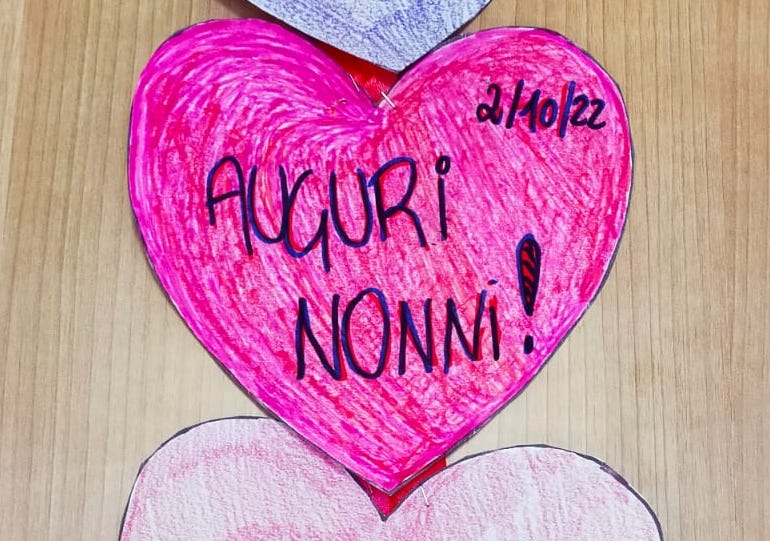 2/10/22
AUGURi
NONNi!